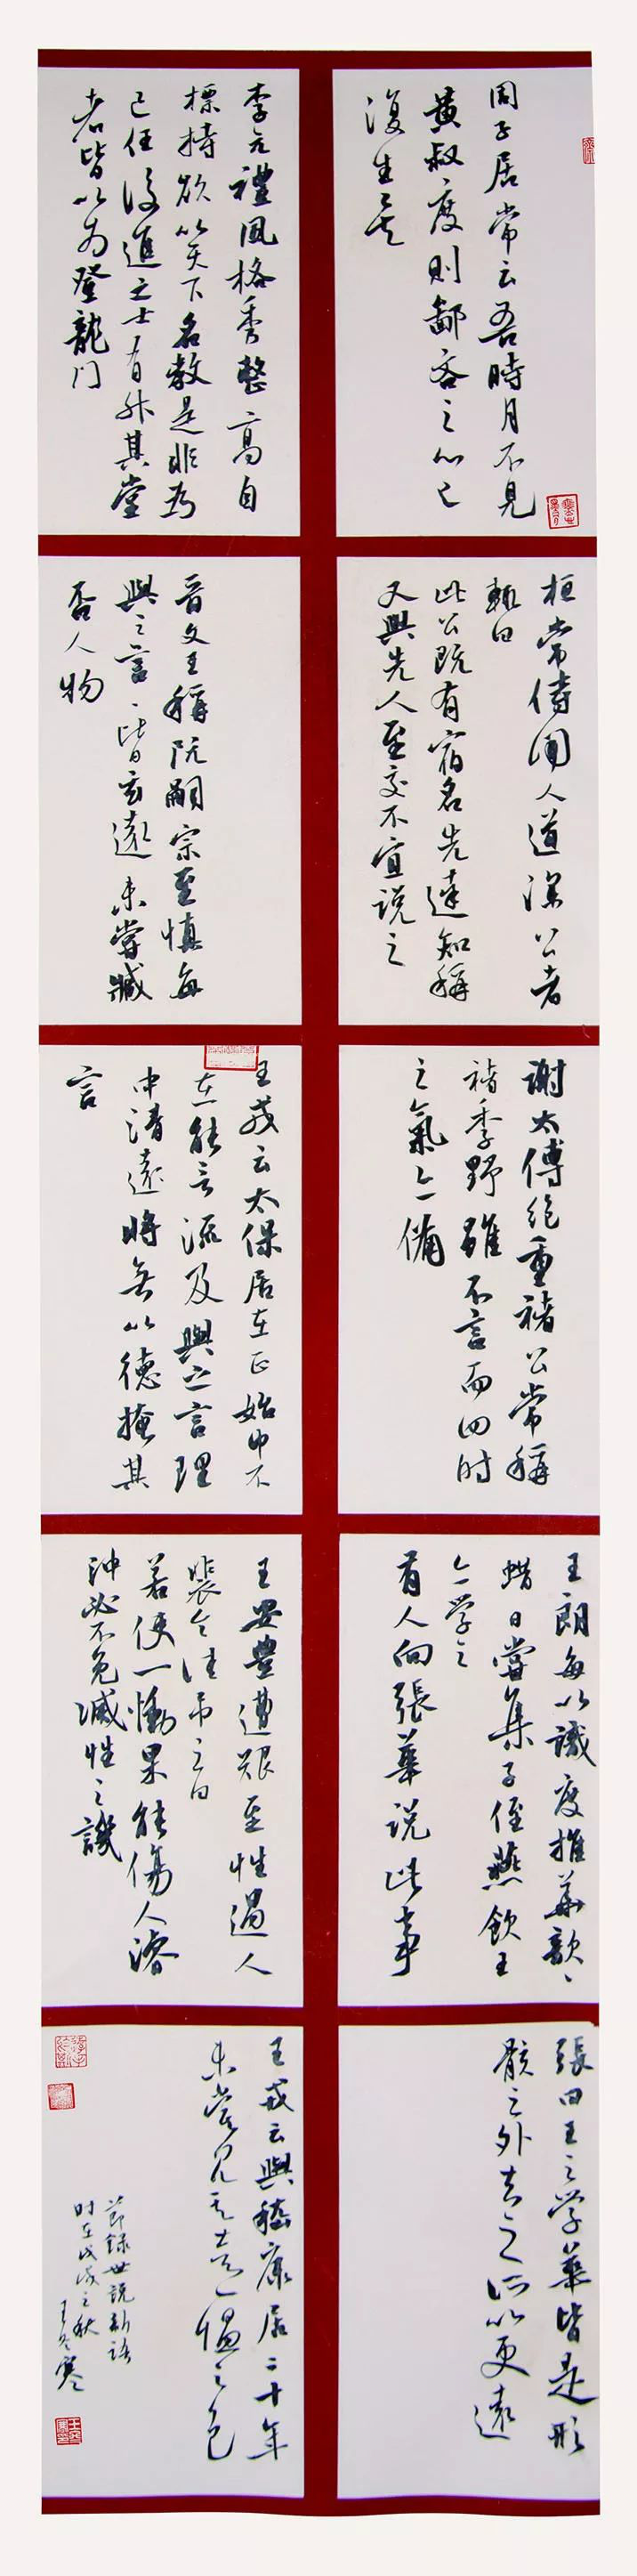 周子居常云吾時月不見
黃叔度則鄙吝之心已
復生矣
桓常侍聞人道深公者
輒曰
此公既有宿名先達知稱
又與先人至交不宜説之
謝太傅絕重褚公常稱
褚季野雖不言而四时
之氣亦備
王朗每以識度推華歆歆
蜡日嘗集子侄燕飲王
亦学之
有人向張華说此事
張曰王之学華皆是形
骸之外去之所以更遠
李元禮風格秀整高自
標持欲以天下名教是非為
己任後進之士有升其堂
者皆以为登龍门
晉文王稱阮嗣宗至慎每
與之言言皆玄遠未嘗臧
否人物
王戎云太保居在正始中不
在能言流及與之言理
中清遠將無以德掩其
言
王安豐遭艱至性過人
裴令往吊之曰
若使一慟果能傷人濬
沖必不免滅性之譏
王戎云與嵇康居二十年
未嘗見其喜愠之色
節録世説新語
时在戊戌之秋